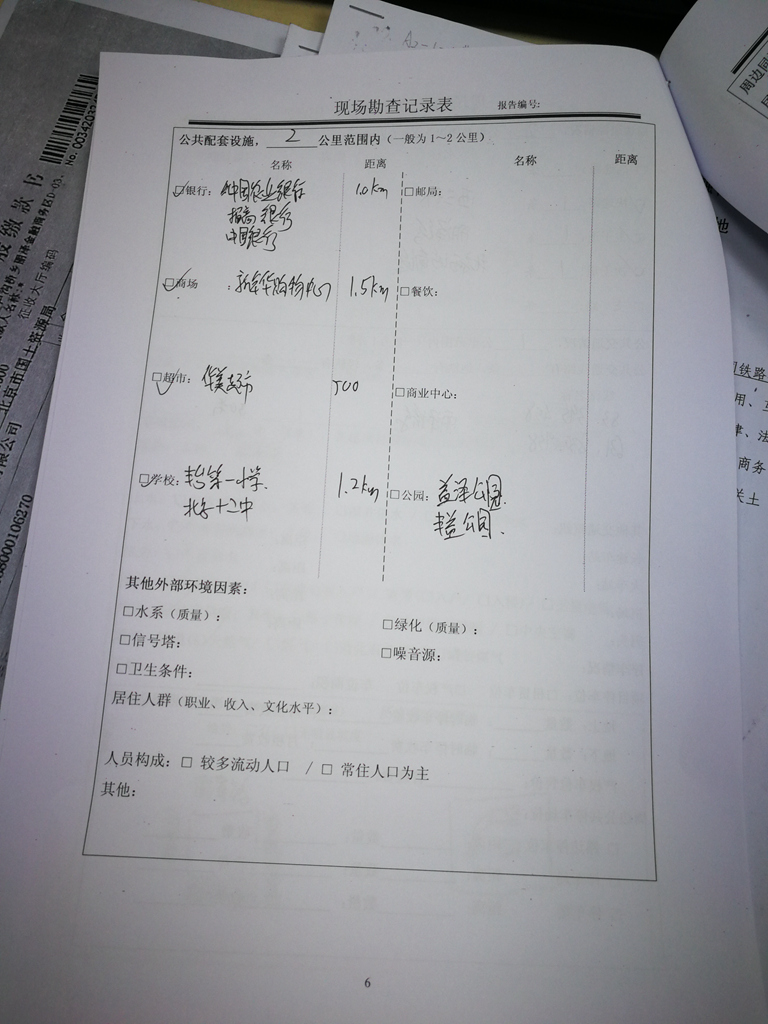 现场勘查记录表 报告编号:
公共配套设施，2公里范围内（一般为1～2公里）
名称 距离 名称 距离
☑银行： 中国农业银行 1.0km □邮局：
招商银行
中国银行
☑商场 ：新华购物中心 1.5km □餐饮：
☑超市： 华美超市 500 □商业中心：
☑学校： 第一小学 1.2km □公园： 益泽公园
北京十二中 丰益公园
其他外部环境因素：
□水系（质量）： □绿化（质量）：
□信号塔： □噪音源：
□卫生条件：
居住人群（职业、收入、文化水平）：
人员构成：□ 较多流动人口 / □ 常住人口为主
其他：
6
缴款书
No.
征收大厅编码
北京市国土资源局
有限公司
周边同
铁路
用、
律、法
商务
关土
地